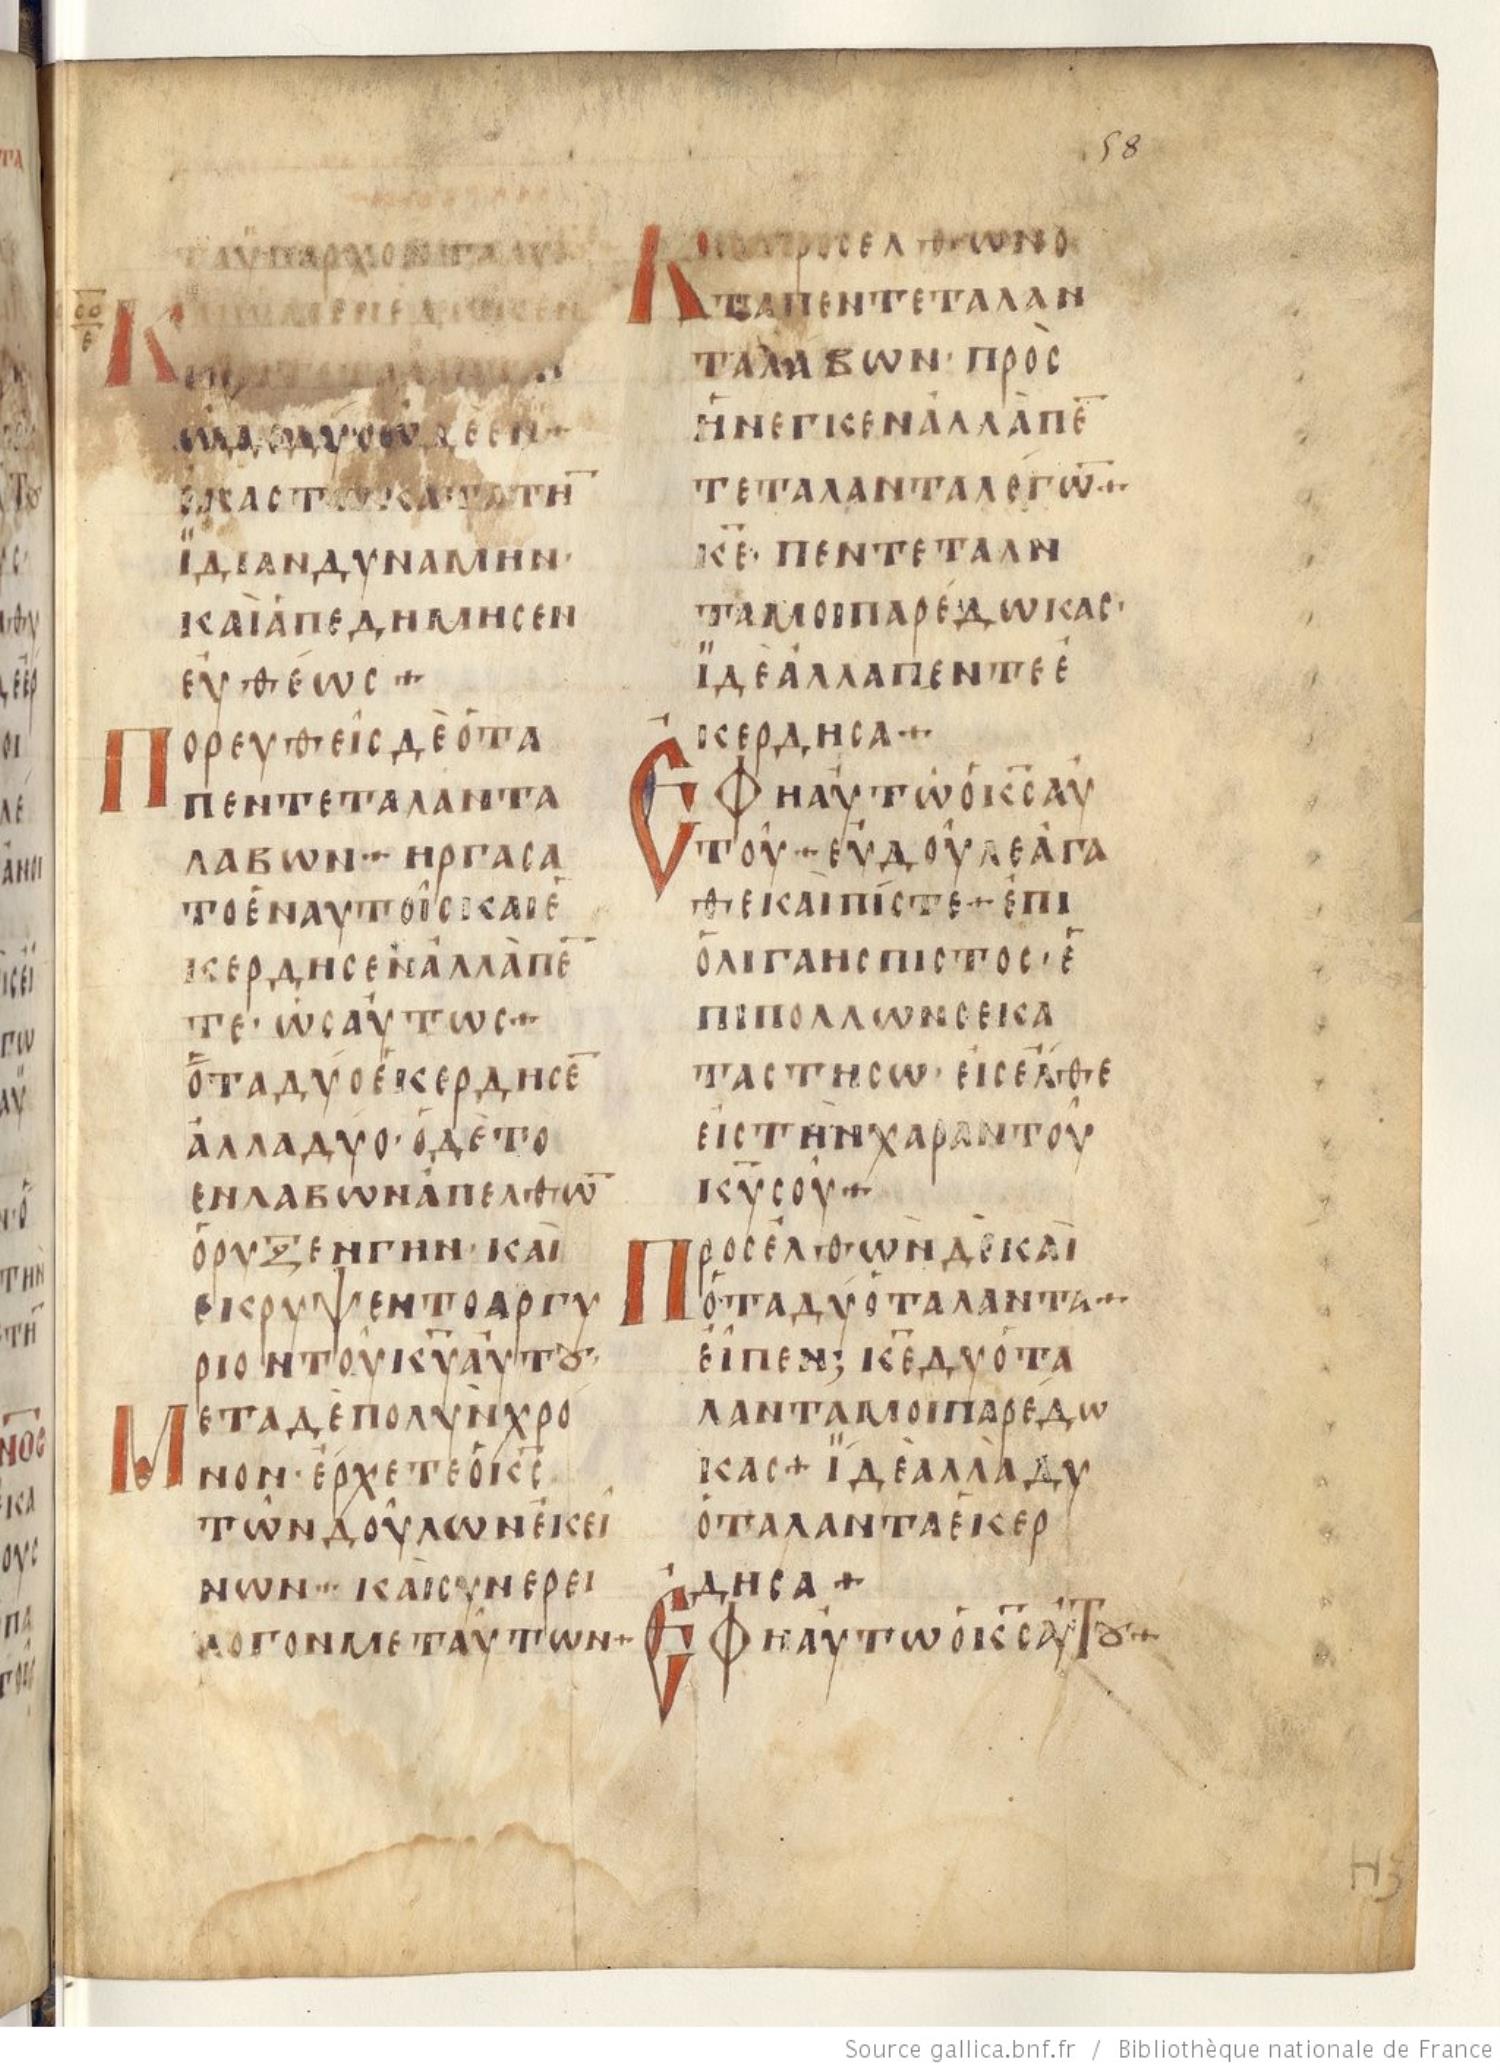 58
ταϋπαρχονταδυ
εκαστωκατατη̅
ϊδίανδυναμην·
καὶἀπεδημησεν
εὐθέως+
Πορευθεὶςδὲὁτα
πεντεταλαντα
λαβων+ ηργασα
τοἐναυτοῖςκαιἐ
κερδησεναλλὰπε̅
τε· ὡσαύτως+
ὅταδύοἐκερδησε̅
ἀλλαδυο· ὁδὲτο
ενλαβωνἀπελθω̅
ὄρυξενγην· καὶ
εκρυψεντοαργυ
ριοντοῦκ̅υ̅αὐτȣ·
Μεταδὲπολὺνχρο
νον· ἔρχετεὁκ̅ς̅
τῶνδούλωνἐκεί
νων+ καὶσυνερει
λογονμεταὐτων+
Καιπροσελθωνο
ταπεντεταλαν
ταλαβων· πρὸς
ήνεγκενἀλλὰπε̅
τεταλανταλέγω̅+
κ̅ε̅· πενταταλν
ταμοιπαρέδωκας·
ϊδὲἀλλαπεντεἐ
κερδησα+
Ἔφηαὐτῶὁκ̅ς̅αὐ
τοῦ+εὖδοῦλεἀγα
θεκαὶπίστε+ἐπι
ὀλιγαηςπιστος·ἐ
πιπολλωνσεικα
ταστησω· εἰσέλθε
εἰςτὴνχαραντοῦ
κ̅υ̅σοῦ+
Προσέλθὼνδὲκαὶ
ὁταδύοταλαντα+
εἶπεν; κ̅ε̅δυὁτα
λανταμοιπαρέδω
κας+ ϊδὲαλλὰδυ
ὁταλανταἐκερ
δησα+
Ἔφηαὐτωὁκ̅ς̅αὐτȣ+
Η3
Source gallica.bnf.fr / Bibliothèque nationale de France